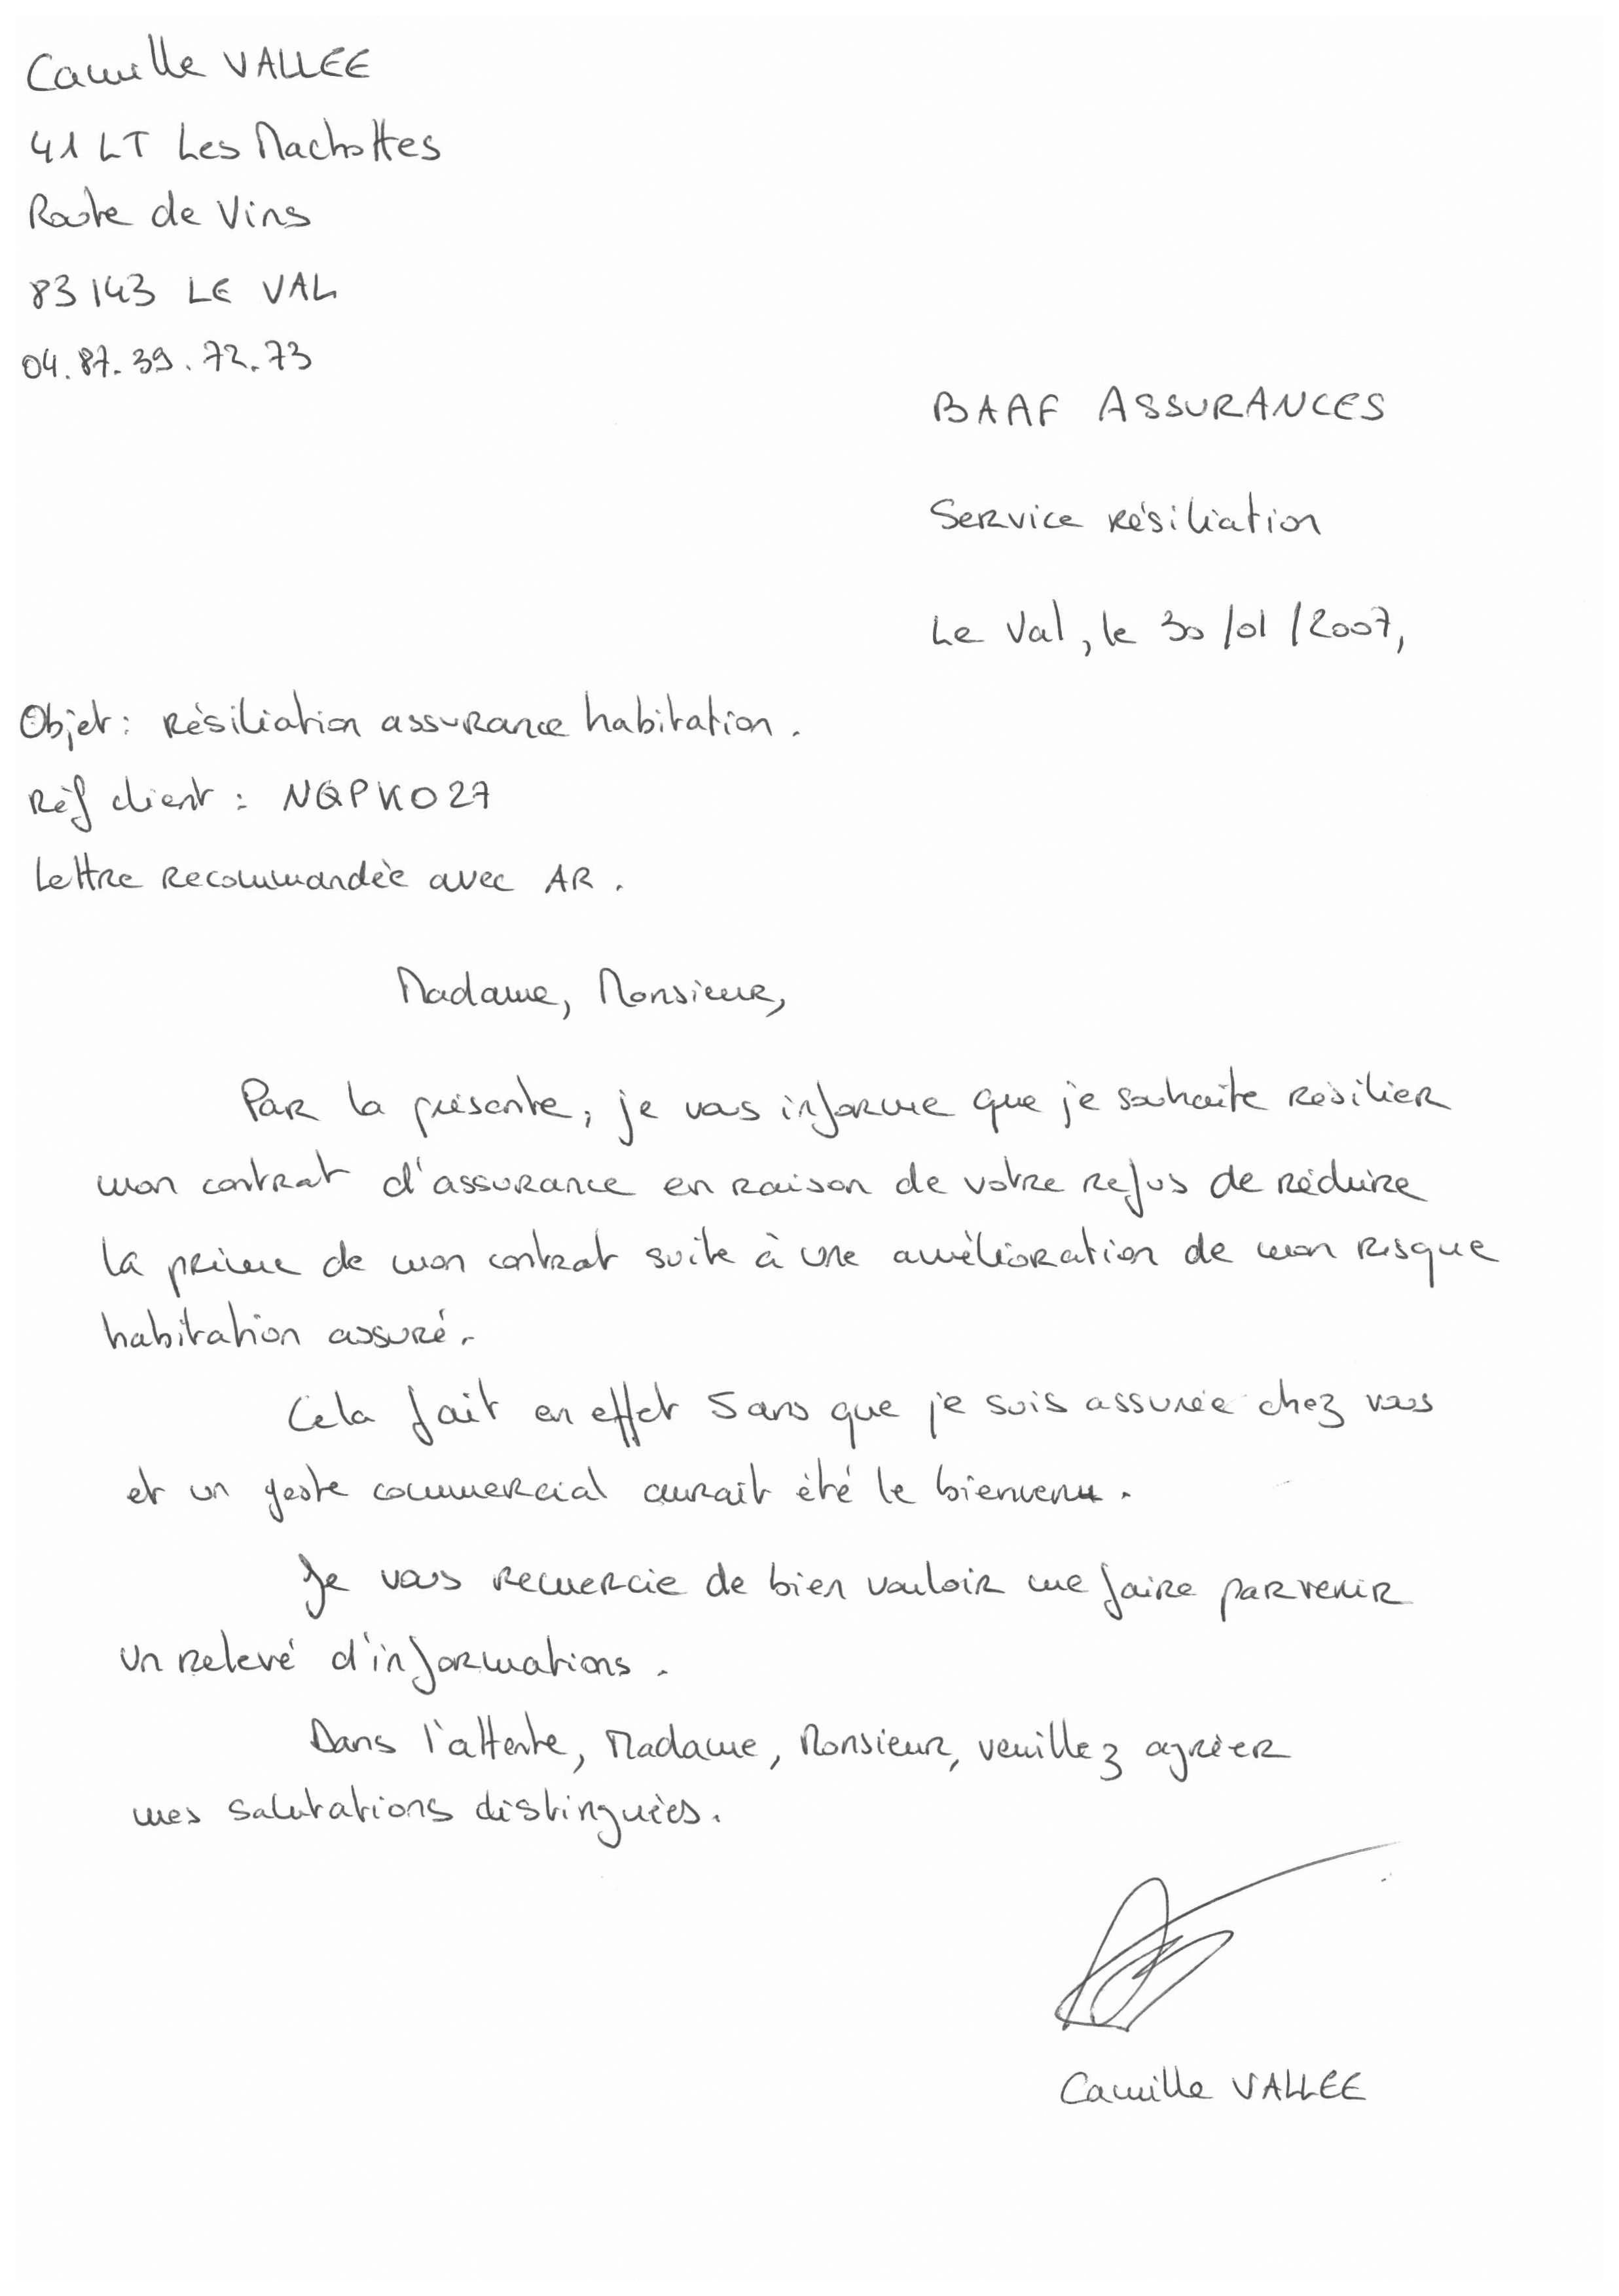 Camille VALLEE
41 LT Les Machottes
Route de Vins
83143 LE VAL
04.87.39.72.73
BAAF ASSURANCES
Service résiliation
Le Val, le 30/01/2007,
Objet : Résiliation assurance habitation.
Réf client : NQPKO27
Lettre recommandée avec AR.
Madame, Monsieur,
Par la présente, je vous informe que je souhaite résilier
mon contrat d'assurance en raison de votre refus de réduire
la prime de mon contrat suite à une amélioration de mon risque
habitation assuré.
Cela fait en effet 5 ans que je suis assurée chez vous
et un geste commercial aurait été le bienvenu.
Je vous remercie de bien vouloir me faire parvenir
un relevé d'informations.
Dans l'attente, Madame, Monsieur, veuillez agréer
mes salutations distinguées.
Camille VALLEE